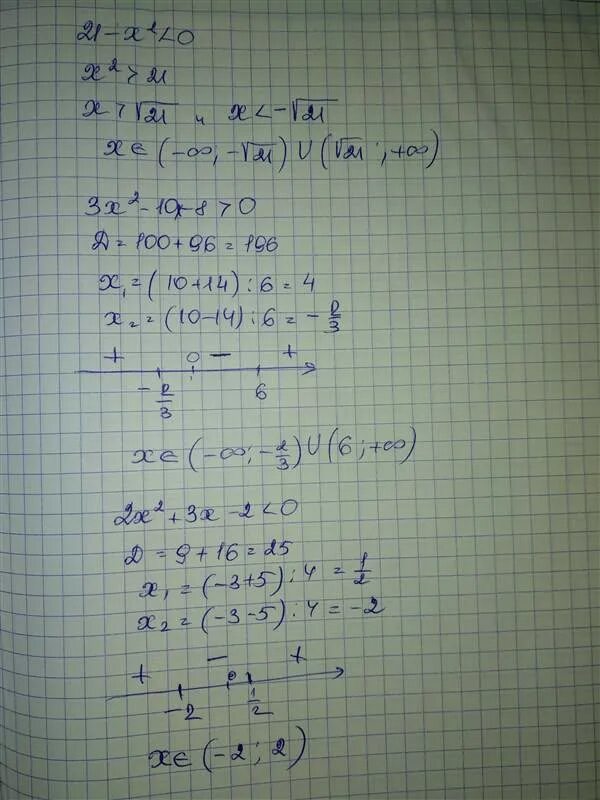 21 - x² < 0
x² > 21
x > √21 и x < -√21
x ∈ (-∞; -√21) ∪ (√21; +∞)
3x² - 10x - 8 > 0
D = 100 + 96 = 196
x₁ = (10+14) : 6 = 4
x₂ = (10-14) : 6 = -2/3
+ 0 - +
-2/3 6
x ∈ (-∞; -2/3) ∪ (6; +∞)
2x² + 3x - 2 < 0
D = 9 + 16 = 25
x₁ = (-3+5) : 4 = 1/2
x₂ = (-3-5) : 4 = -2
+ - 0 +
-2 1/2
x ∈ (-2; 2)